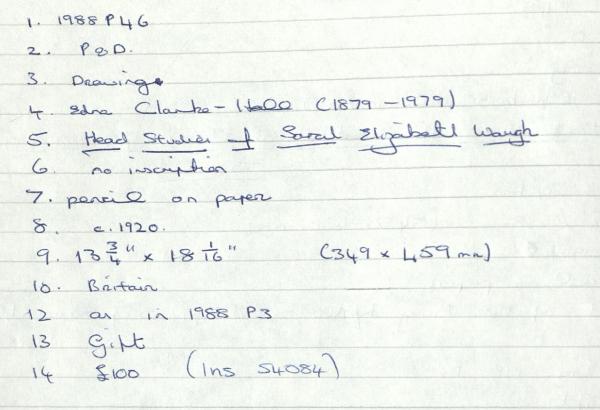 1. 1988 P46
2. P&D.
3. Drawing
4. Edna Clarke-Hall (1879-1979)
5. Head Studies of Sarah Elizabeth Waugh
6. no inscription
7. pencil on paper
8. c.1920.
9. 13 3/4" x 18 1/16" (349 x 459mm)
10. Britain
12 as in 1988 P3
13 Gift
14 £100 (Ins 54084)